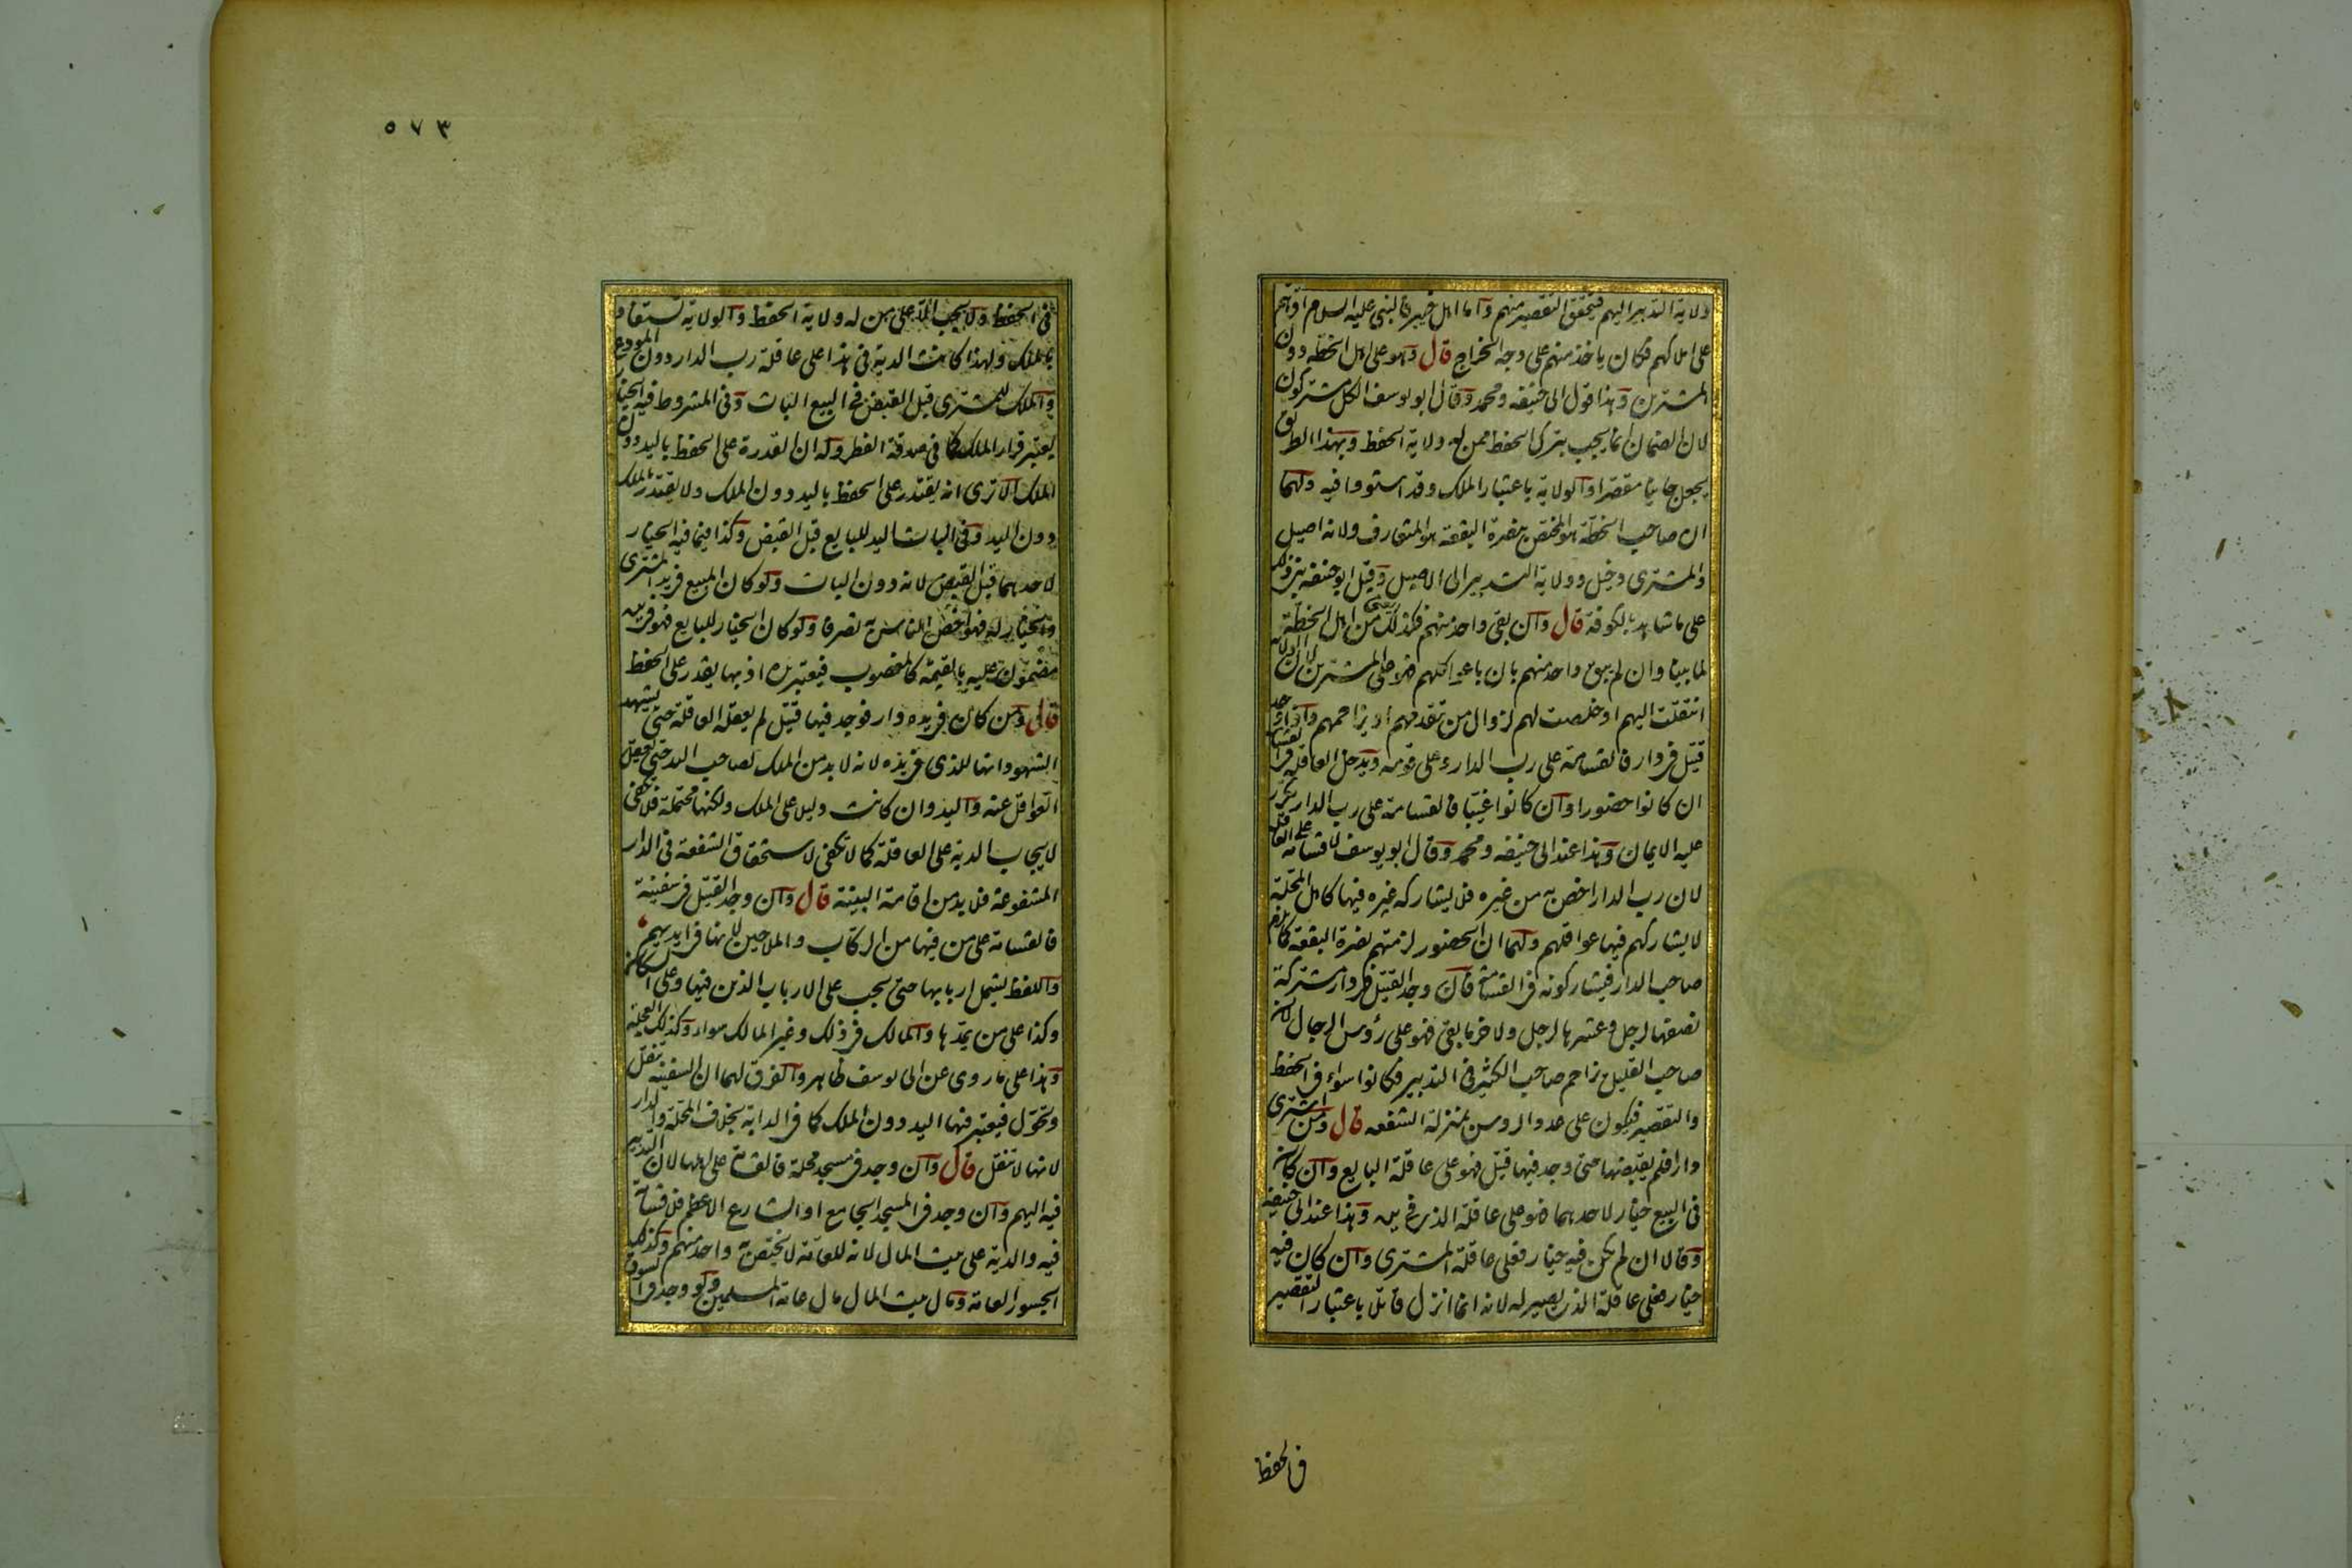 ولاية التدبير اليهم فيتحقق التقصير منهم واما اهل خيبر فالنبى عليه السلام اقرهم
على املاكهم فكان ياخذ منهم على وجه الخراج قال وهو على اهل الخطة دون
المشترين وهذا قول ابى حنيفه ومحمد وقال ابو يوسف الكل مشتركون
لان الضمان انما يجب بترك الحفظ ممن له ولاية الحفظ وبهذا الطريق
يجعل جانيا مقصرا والولاية باعتبار الملك وقد استووا فيه ولهما
ان صاحب الخطة هو المختص بنصرة البقعة هو المتعارف ولانه اصيل
والمشترى دخيل وولاية التدبير الى الاصيل وقيل ابو حنيفه بنى ذلك
على ما شاهد بالكوفة قال وان بقى واحد منهم فكذلك يعنى من اهل الخطة
لما بينا وان لم يبق واحد منهم بان باعوا كلهم فهو على المشترين لان الولاية
انتقلت اليهم او خلصت لهم لزوال من تقدمهم او يزاحمهم واذا وجد
قتيل فى دار فالقسامة على رب الدار وعلى قومه ويدخل العاقلة فى القسامة
ان كانوا حضورا وان كانوا غيبا فالقسامة على رب الدار يكرر
عليه الايمان وهذا عند ابى حنيفه ومحمد وقال ابو يوسف لا قسامة على العاقلة
لان رب الدار اخص به من غيره فلا يشاركه غيره فيها كاهل المحلة
لا يشاركهم فيها عواقلهم ولهما ان الحضور لزمتهم نصرة البقعة كما يلزم
صاحب الدار فيشاركونه فى القسامة قال وان وجد القتيل فى دار مشتركة
نصفها لرجل وعشرها لرجل ولاخر ما بقى فهو على رؤس الرجال لان
صاحب القليل يزاحم صاحب الكثير فى التدبير فكانوا سواء فى الحفظ
والتقصير فيكون على عدد الروس بمنزلة الشفعه قال ومن اشترى
دارا فلم يقبضها حتى وجد فيها قتيل فهو على عاقلة البايع وان كان
فى البيع خيار لاحدهما فهو على عاقلة الذى فى يده وهذا عند ابى حنيفه
وقالا ان لم يكن فيه خيار فعلى عاقلة المشترى وان كان فيه
خيار فعلى عاقلة الذى يصير له لانه انما انزل قاتلا باعتبار التقصير
فى الحفظ
٥٧٣
فى الحفظ ولا يجب الا على من له ولاية الحفظ والولاية تستفاد
بالملك ولهذا كانت الدية فى هذا على عاقلة رب الدار دون المودع
والملك للمشترى قبل القبض فى البيع البات وفى المشروط فيه الخيار
يعتبر قرار الملك كما فى صدقة الفطر وله ان القدرة على الحفظ باليد دون
الملك الا ترى انه يقتدر على الحفظ باليد دون الملك ولا يقتدر بالملك
دون اليد وفى البات اليد للبايع قبل القبض وكذا فيما فيه الخيار
لاحدهما قبل القبض لانه دون البات ولو كان المبيع فى يد المشترى
والخيار له فهو اخص الناس به تصرفا ولو كان الخيار للبايع فهو فى يده
مضمون عليه بالقيمة كالمغصوب فيعتبر يده اذ بها يقدر على الحفظ
قال ومن كان فى يده دار فوجد فيها قتيل لم يعقله العاقلة حتى يشهد
الشهود انها للذى فى يده لانه لا بد من الملك لصاحب اليد حتى يعقل
العواقل عنه واليد وان كانت دليلا على الملك ولكنها محتملة فلا تكفى
لايجاب الدية على العاقلة كما لا تكفى لاستحقاق الشفعة فى الدار
المشفوعة فلا بد من اقامة البينة قال وان وجد القتيل فى سفينة
فالقسامة على من فيها من الركاب والملاحين لانها فى ايديهم
واللفظ يشمل اربابها حتى يجب على الارباب الذين فيها وعلى السكان
وكذا على من يمدها والمالك فى ذلك وغير المالك سواء وكذلك العجلة
وهذا على ما روى عن ابى يوسف ظاهر والفرق لهما ان السفينة تنقل
وتحول فيعتبر فيها اليد دون الملك كما فى الدابة بخلاف المحلة والدار
لانها لا تنقل قال وان وجد فى مسجد محلة فالقسامة على اهلها لان التدبير
فيه اليهم وان وجد فى المسجد الجامع او الشارع الاعظم فلا قسامة
فيه والدية على بيت المال لانه للعامة لا يختص به واحد منهم وكذلك
الجسور العامة ومال بيت المال مال عامة المسلمين ولو وجد فى السوق